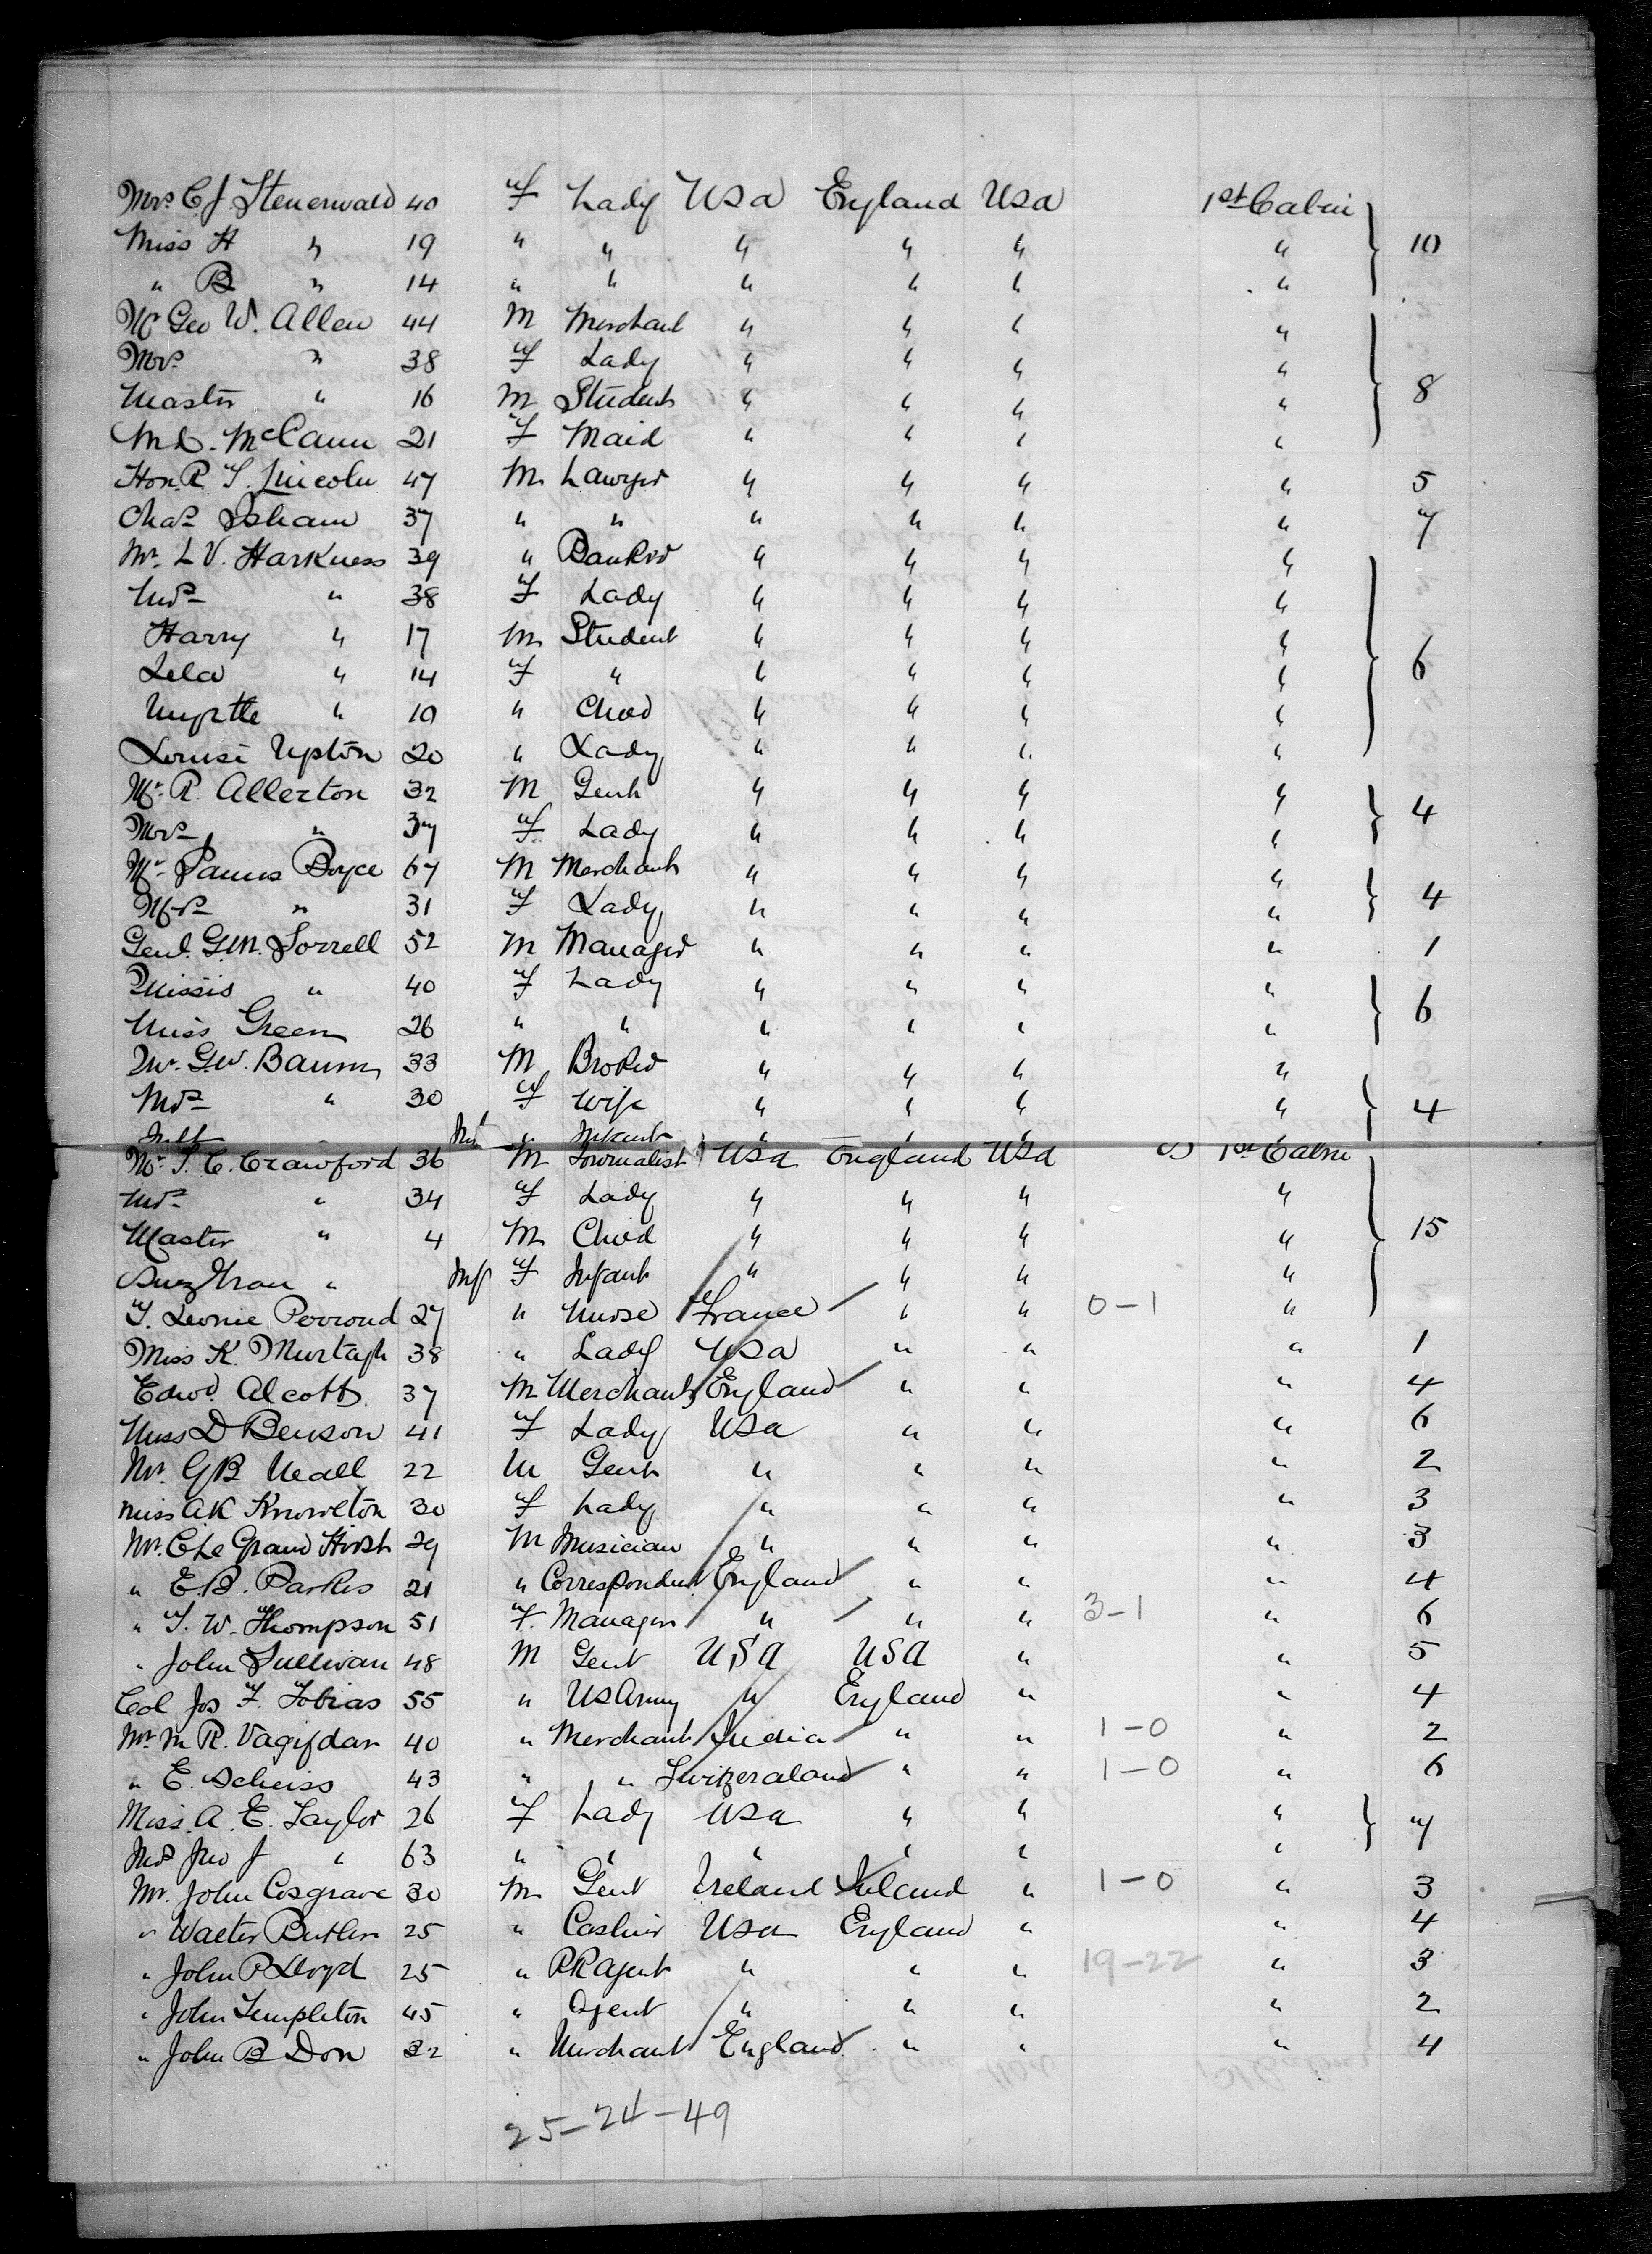 Mrs. C. J. Steuerwald 40 F Lady USA England USA 1st Cabin
Miss H " 19 " " " " " " 10
" B " 14 " " " " " "
Mr Geo W. Allen 44 M Merchant " " " "
Mrs. " 38 F Lady " " " "
Master " 16 M Student " " " " 8
M D. McCann 21 F Maid " " " "
Hon. R. T. Lincoln 47 M Lawyer " " " " 5
Chas Isham 37 " " " " " " 7
Mr. L V. Harkness 39 " Banker " " " "
Mrs " 38 F Lady " " " "
Harry " 17 M Student " " " "
Lela " 14 F " " " " " 6
Myrtle " 10 " Child " " " "
Louise Upton 20 " Lady " " " "
Mr. R. Allerton 32 M Gent " " " " 4
Mrs " 37 F Lady " " " "
Mr. James Boyce 67 M Merchant " " " "
Mrs " 31 F Lady " " " " 4
Genl. G.M. Sorrell 52 M Manager " " " " 1
Missis " 40 F Lady " " " "
Miss Green 26 " " " " " " 6
Mr. G.W. Baum 33 M Broker " " " "
Mrs " 30 F Wife " " " " 4
Inft " Inf " Infant " " "
Mr. T. C. Crawford 36 M Journalist USA England USA 1st Cabin
Mrs " 34 F Lady " " " "
Master " 4 M Child " " " " 15
" Inf F Infant " " " "
T. Leonie Perroud 27 " Nurse France " " 0-1 "
Miss K. Murtagh 38 " Lady USA " " " 1
Edwd Alcott 37 M Merchant England " " " 4
Miss D Benson 41 F Lady USA " " " 6
Mr. G B Neall 22 M Gent " " " " 2
Miss A K Knowlton 30 F Lady " " " " 3
Mr. C Le Grand Hirsh 29 M Musician " " " " 3
" E. B. Parkes 21 " Correspondent England " " " 4
" T. W. Thompson 51 F. Manager " " " 3-1 " 6
" John Sullivan 48 M Gent USA USA " " 5
Col Jos F. Tobias 55 " US Army " England " " 4
Mr M R. Vagifdar 40 " Merchant India " " 1-0 " 2
" E. Scheiss 43 " " Switzeraland " " 1-0 " 6
Miss. A. E. Taylor 26 F Lady USA " " " 7
Mrs Jno J " 63 " " " " " "
Mr. John Cosgrave 30 M Gent Ireland Ireland " 1-0 " 3
" Walter Butler 25 " Cashier USA England " " 4
" John P Lloyd 25 " RR Agent " " " 19-22 " 3
" John Templeton 45 " Agent " " " " 2
" John B Don 32 " Merchant England " " " 4
25-24-49